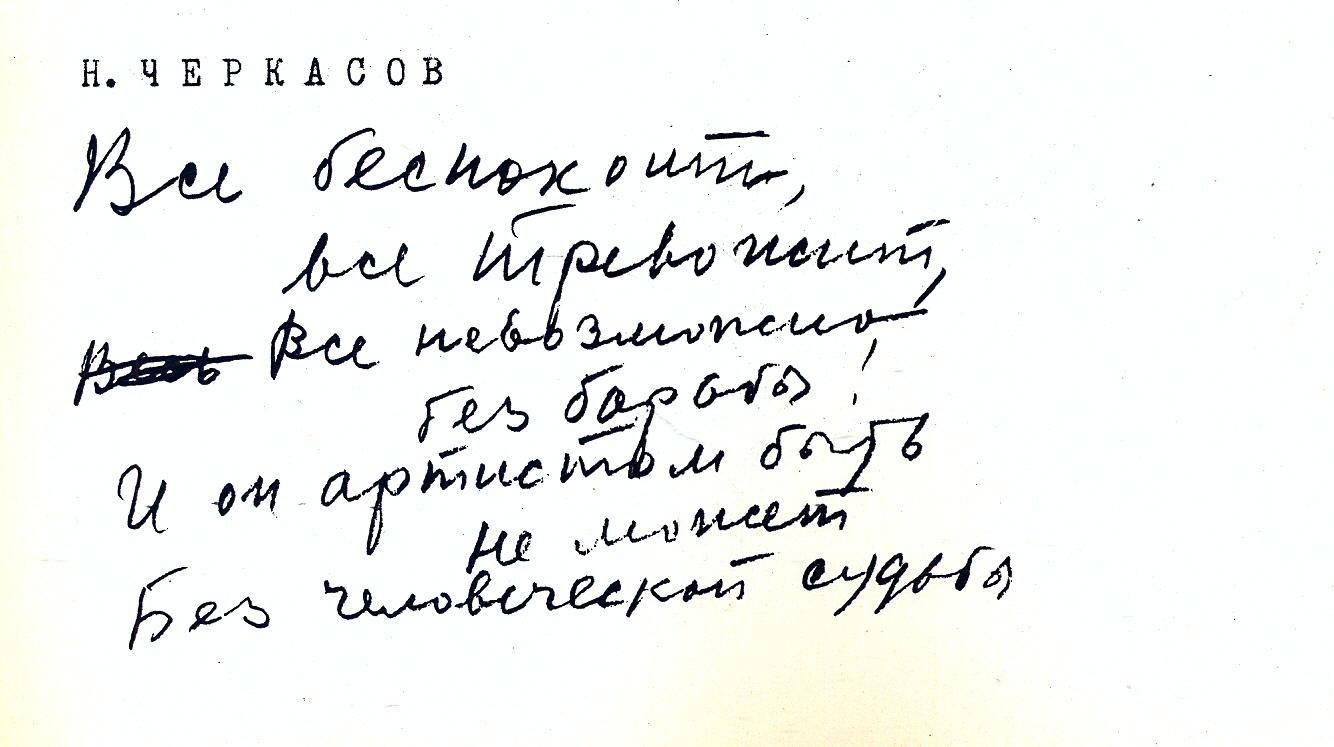 Н. ЧЕРКАСОВ
Все беспокоит,
все тревожит,
Все невозможно
без борьбы!
И он артистом быть
не может
Без человеческой судьбы